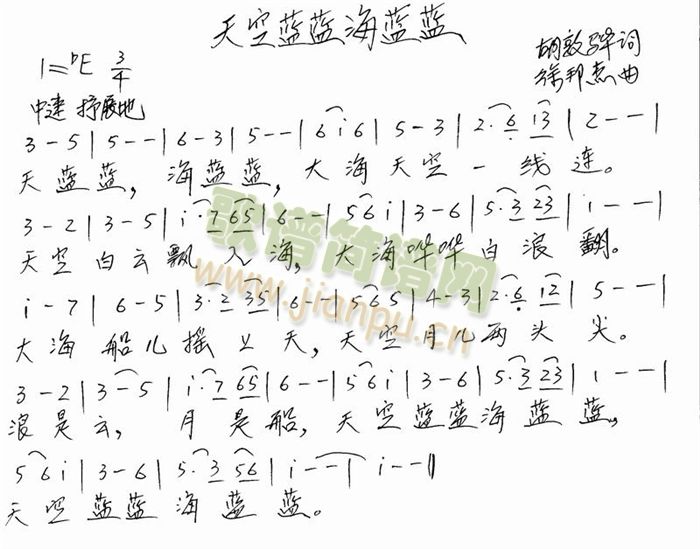 天空蓝蓝海蓝蓝
1=♭E 3/4
胡敦骅词
徐邦杰曲
中速 抒展地
3 - 5 | 5 - - | 6 - 3 | 5 - - | 6 i 6 | 5 - 3 | 2· 6 1 3 | 2 - - |
天蓝蓝，海蓝蓝，大海天空一线连。
3 - 2 | 3 - 5 | i· 7 6 5 | 6 - - | 5 6 i | 3 - 6 | 5· 3 2 3 | 1 - - |
天空白云飘入海，大海哗哗白浪翻。
i - 7 | 6 - 5 | 3· 2 3 5 | 6 - - | 5 6 5 | 4 - 3 | 2· 6 1 2 | 5 - - |
大海船儿摇上天，天空月儿两头尖。
3 - 2 | 3 - 5 | i· 7 6 5 | 6 - - | 5 6 i | 3 - 6 | 5· 3 2 3 | 1 - - |
浪是云，月是船，天空蓝蓝海蓝蓝，
5 6 i | 3 - 6 | 5· 3 5 6 | i - - | i - - ||
天空蓝蓝海蓝蓝。
歌谱简谱网
www.jianpu.cn